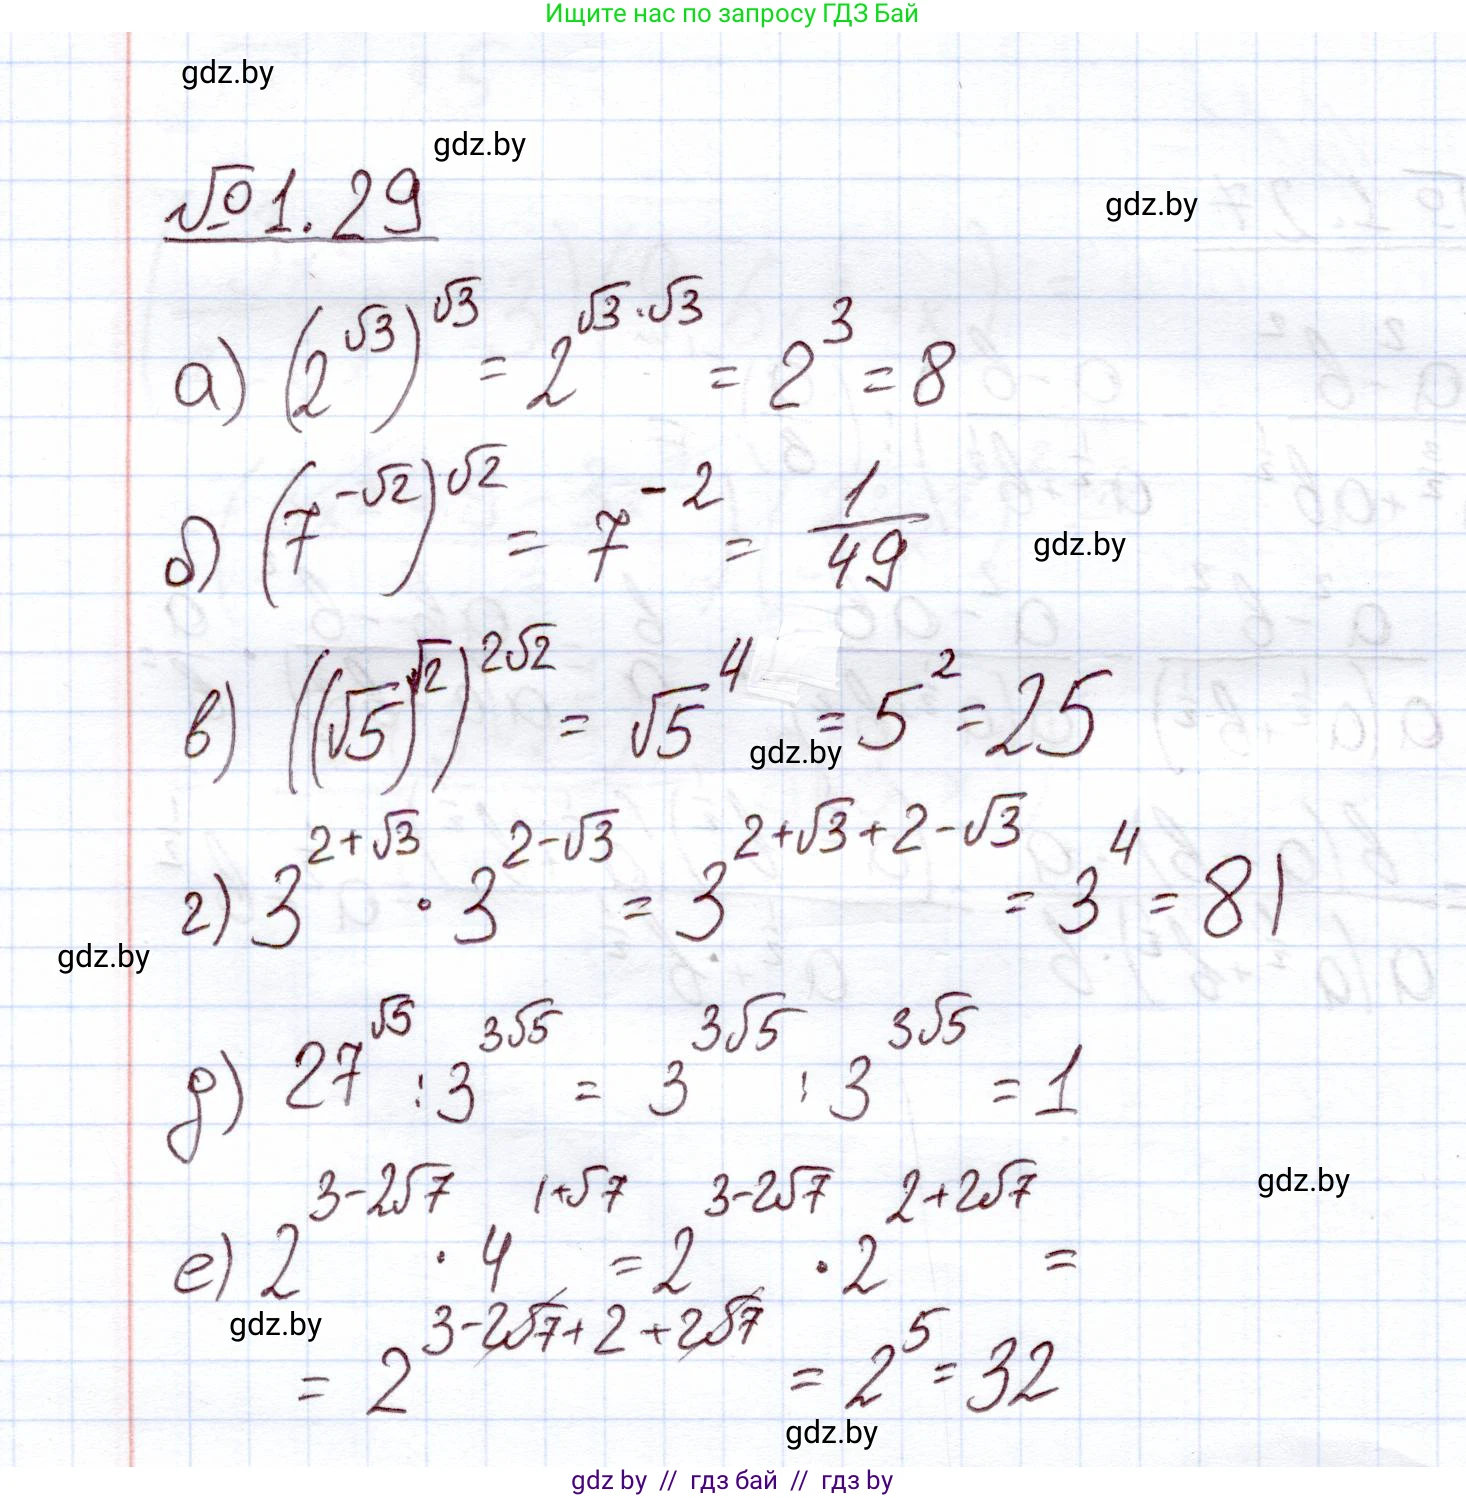 Ищите нас по запросу ГДЗ Бай
gdz.by
gdz.by
№ 1.29
gdz.by
а) (2^√3)^√3 = 2^(√3·√3) = 2^3 = 8
б) (7^(-√2))^√2 = 7^(-2) = 1/49
gdz.by
в) ((√5)^√2)^(2√2) = √5^4 = 5^2 = 25
gdz.by
г) 3^(2+√3) · 3^(2-√3) = 3^(2+√3+2-√3) = 3^4 = 81
gdz.by
д) 27^√5 : 3^(3√5) = 3^(3√5) : 3^(3√5) = 1
gdz.by
е) 2^(3-2√7) · 4^(1+√7) = 2^(3-2√7) · 2^(2+2√7) =
gdz.by
= 2^(3-2√7+2+2√7) = 2^5 = 32
gdz.by
gdz by // гдз бай // гдз by